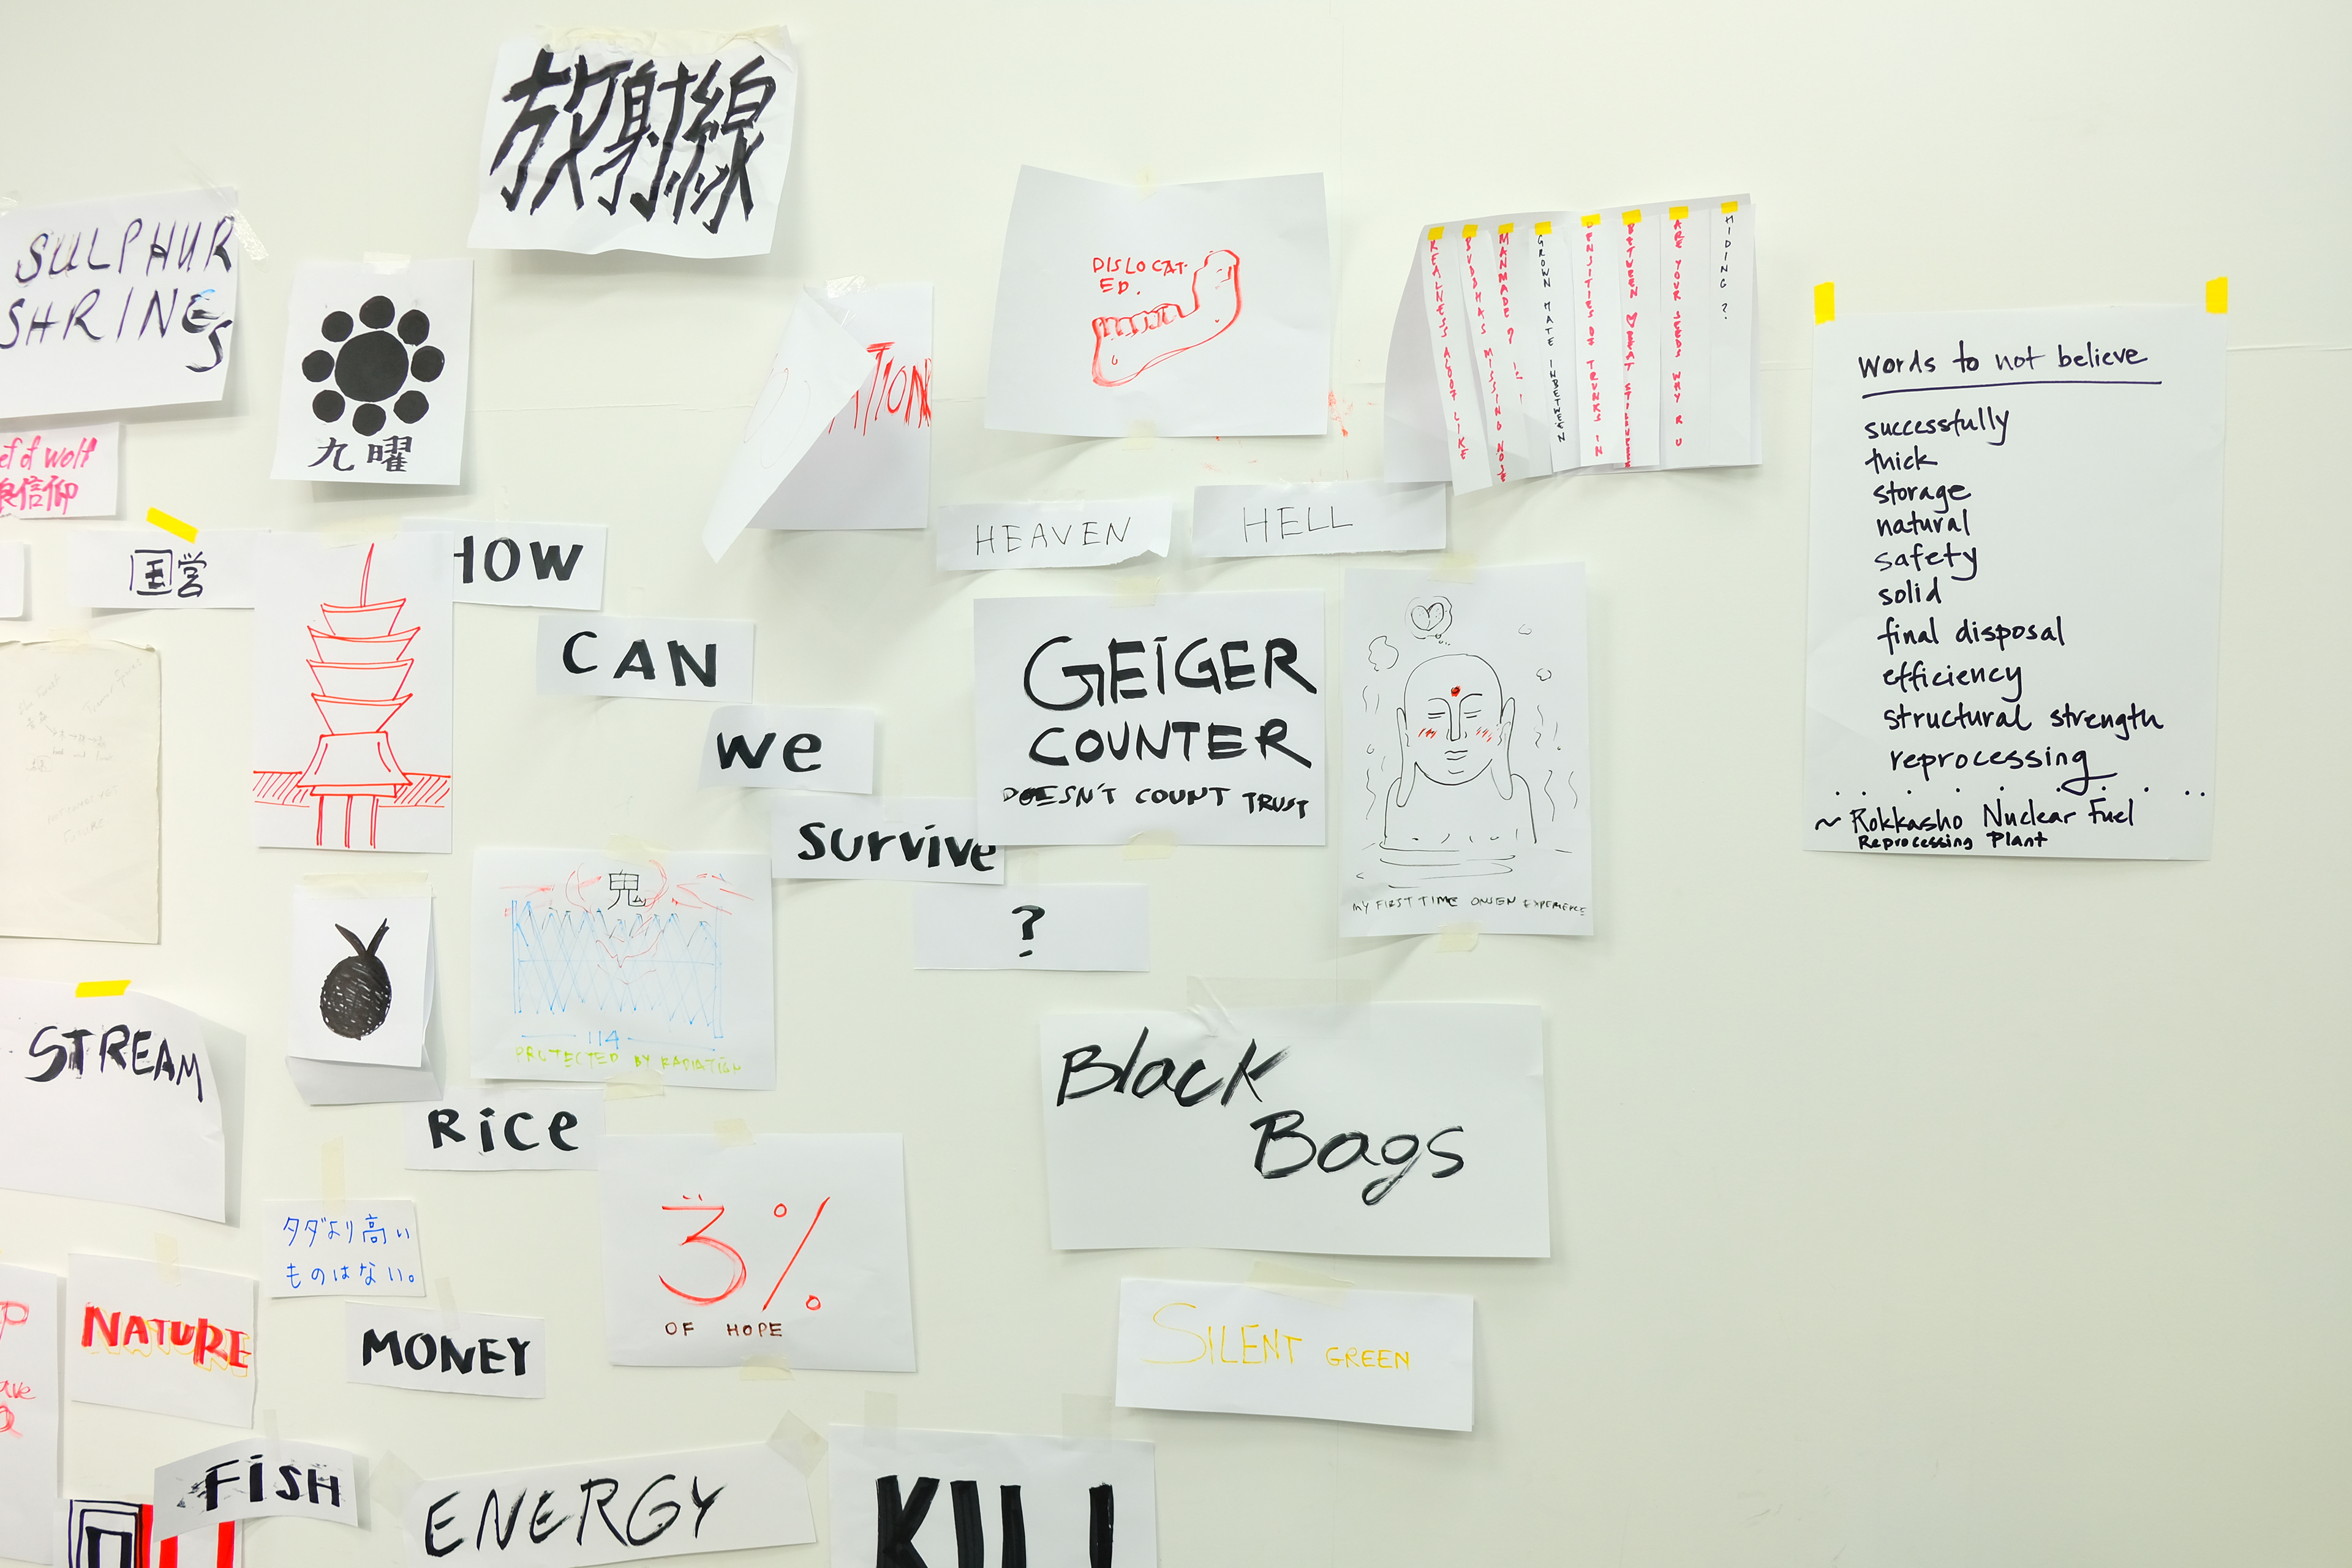 放射線
SULPHUR
SHRINES
九曜
ef of wolf
信仰
国営
HOW
CAN
we
survive
?
TION
DISLOCAT-
ED.
HEAVEN
HELL
REALNESS ALOOF LIKE
BUDDHAS MISSING NOSE
MANMADE
GROWN MATE INBETWEEN
DENSITIES OF TRUNKS IN
BETWEEN
ARE YOUR SEEDS WHY R U
HIDING ?
GEIGER
COUNTER
DOESN'T COUNT TRUST
MY FIRST TIME ONSEN EXPERIENCE
words to not believe
successfully
thick
storage
natural
safety
solid
final disposal
efficiency
structural strength
reprocessing
~ Rokkasho Nuclear Fuel
Reprocessing Plant
鬼
114
PROTECTED BY RADIATION
STREAM
Rice
タダより高い
ものはない。
3%
OF HOPE
Black
Bags
SILENT GREEN
NATURE
MONEY
FISH
ENERGY